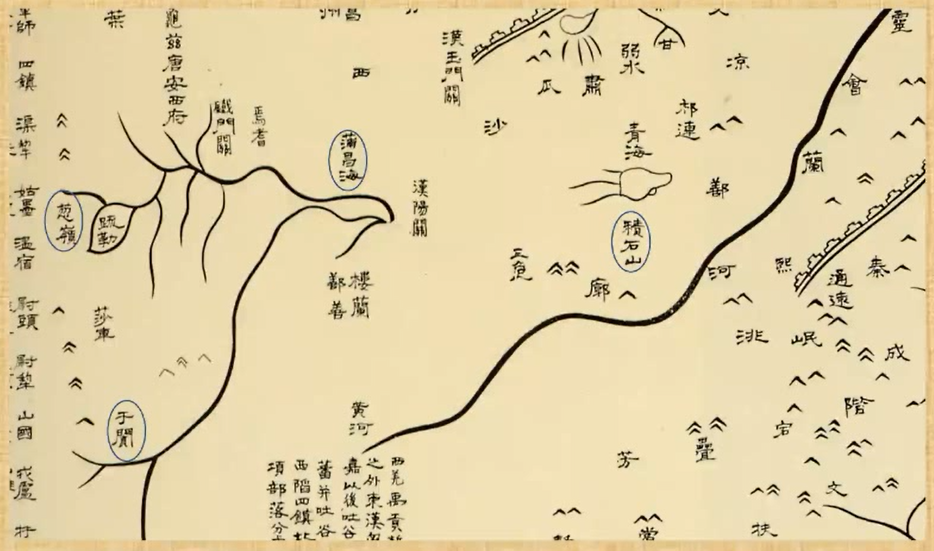 靈
會
蘭
涼
甘
弱水
肅
瓜
漢玉門關
祁連
鄯
青海
積石山
沙
三危
廓
河
熙
通遠
秦
洮
岷
成
階
宕
疊
芳
文
扶
昌
西
蒲昌海
漢陽關
樓蘭
鄯善
焉耆
鐵門關
龜茲唐安西府
葱嶺
疏勒
莎車
于闐
黃河
四鎮
渠犂
姑墨
溫宿
尉頭
尉犂
山國
戎盧
西羌禹貢
之外東漢
嘉以後吐谷
蕃并吐谷
西陷四鎮
項部落分